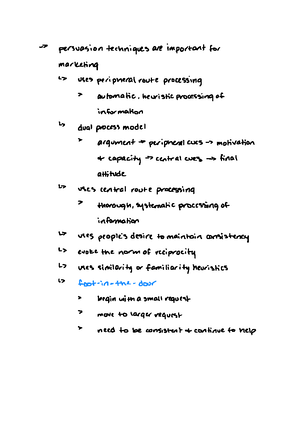 -> persuasion techniques are important for
marketing
↳ uses peripheral route processing
> automatic, heuristic processing of
information
↳ dual process model
> argument -> peripheral cues -> motivation
& capacity -> central cues -> final
attitude
↳ uses central route processing
> thorough, systematic processing of
information
↳ uses people's desire to maintain consistency
↳ evoke the norm of reciprocity
↳ uses similarity or familiarity heuristics
↳ foot-in-the-door
> begin with a small request
> move to larger request
> need to be consistent & continue to help